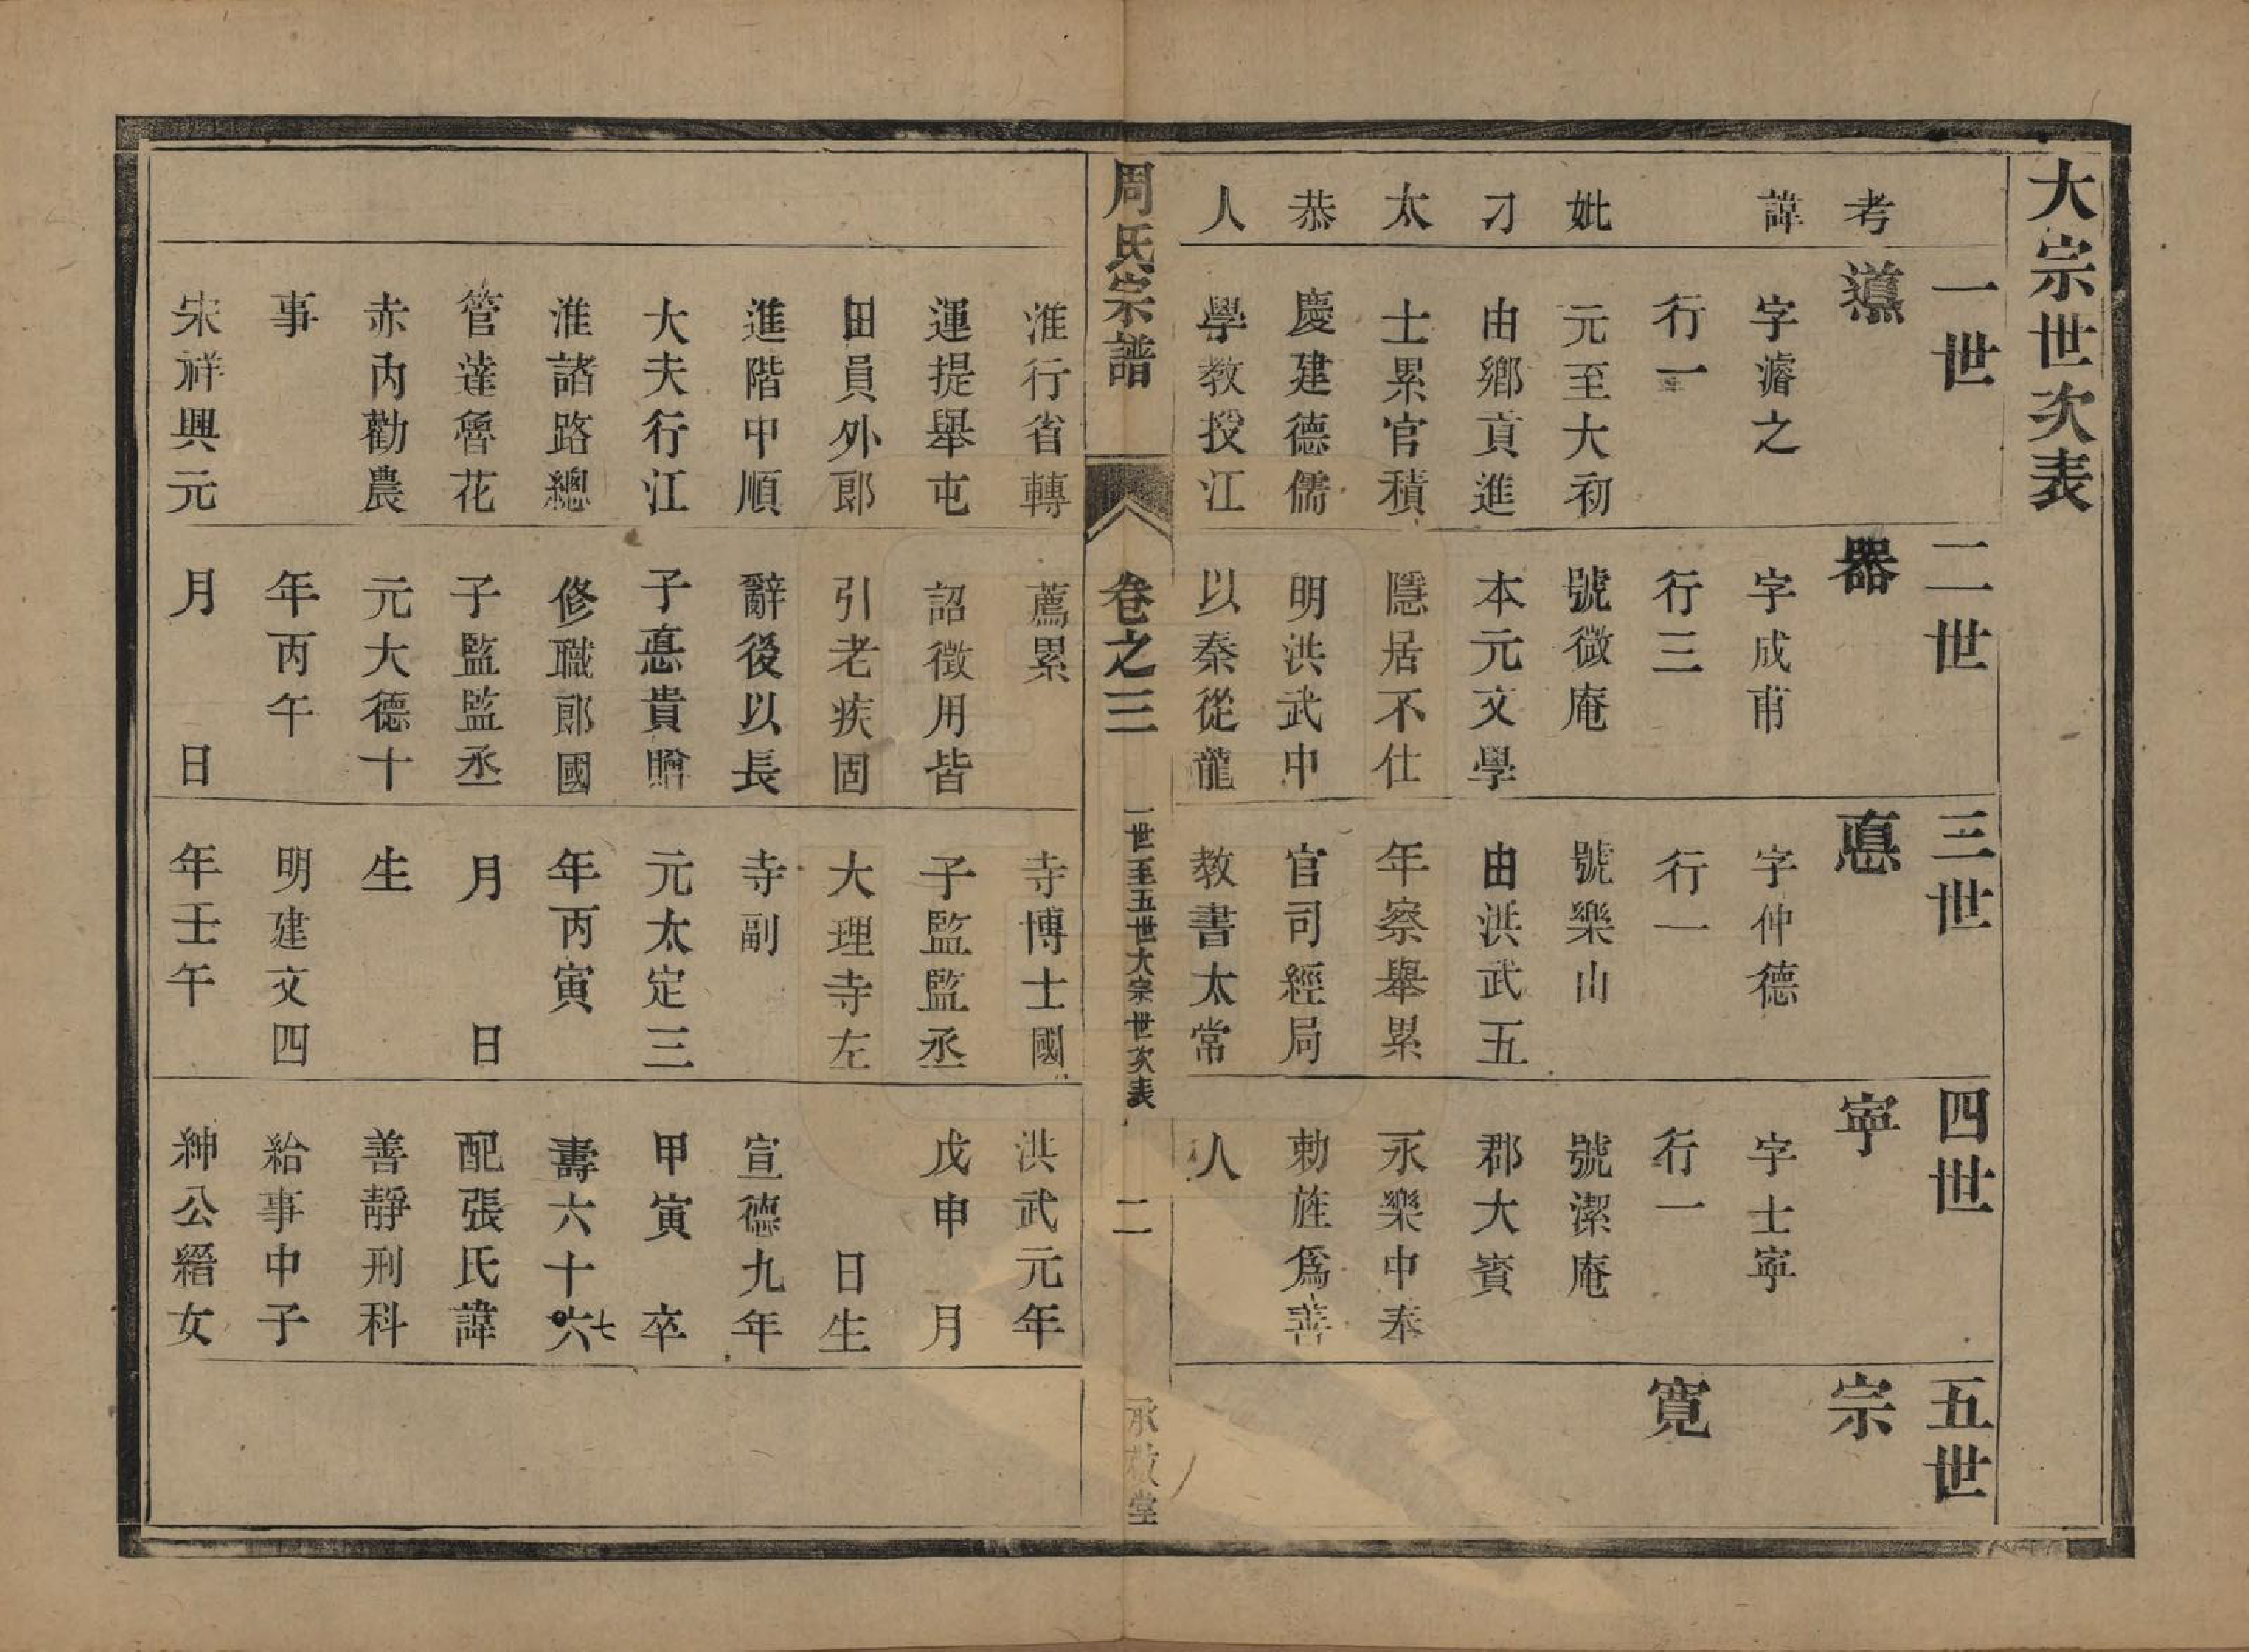 大宗世次表
考
諱
妣
刁
太
恭
人
一世
字濬之
行一
元至大初
由鄉貢進
士累官積
慶建德儒
學教授江
淮行省轉
運提舉屯
田員外郎
進階中順
大夫行江
淮諸路總
管達魯花
赤內勸農
事
宋祥興元
二世
器
字成甫
行三
號微庵
本元文學
隱居不仕
明洪武中
以秦從龍
薦累
詔徵用皆
引老疾固
辭後以長
子悳貴贈
修職郎國
子監監丞
元大德十
年丙午
月 日
三世
悳
字仲德
行一
號樂山
由洪武五
年察舉累
官司經局
教書太常
寺博士國
子監監丞
大理寺左
寺副
元太定三
年丙寅
月 日
生
明建文四
年壬午
四世
寧
字士寧
行一
號潔庵
郡大賓
永樂中奉
勅旌爲善
人
洪武元年
戊申 月
日生
宣德九年
甲寅 卒
壽六十六七
配張氏諱
善靜刑科
給事中子
紳公縉女
五世
宗
寬
周氏宗譜
卷之三
一世至五世大宗世次表
二
承敬堂